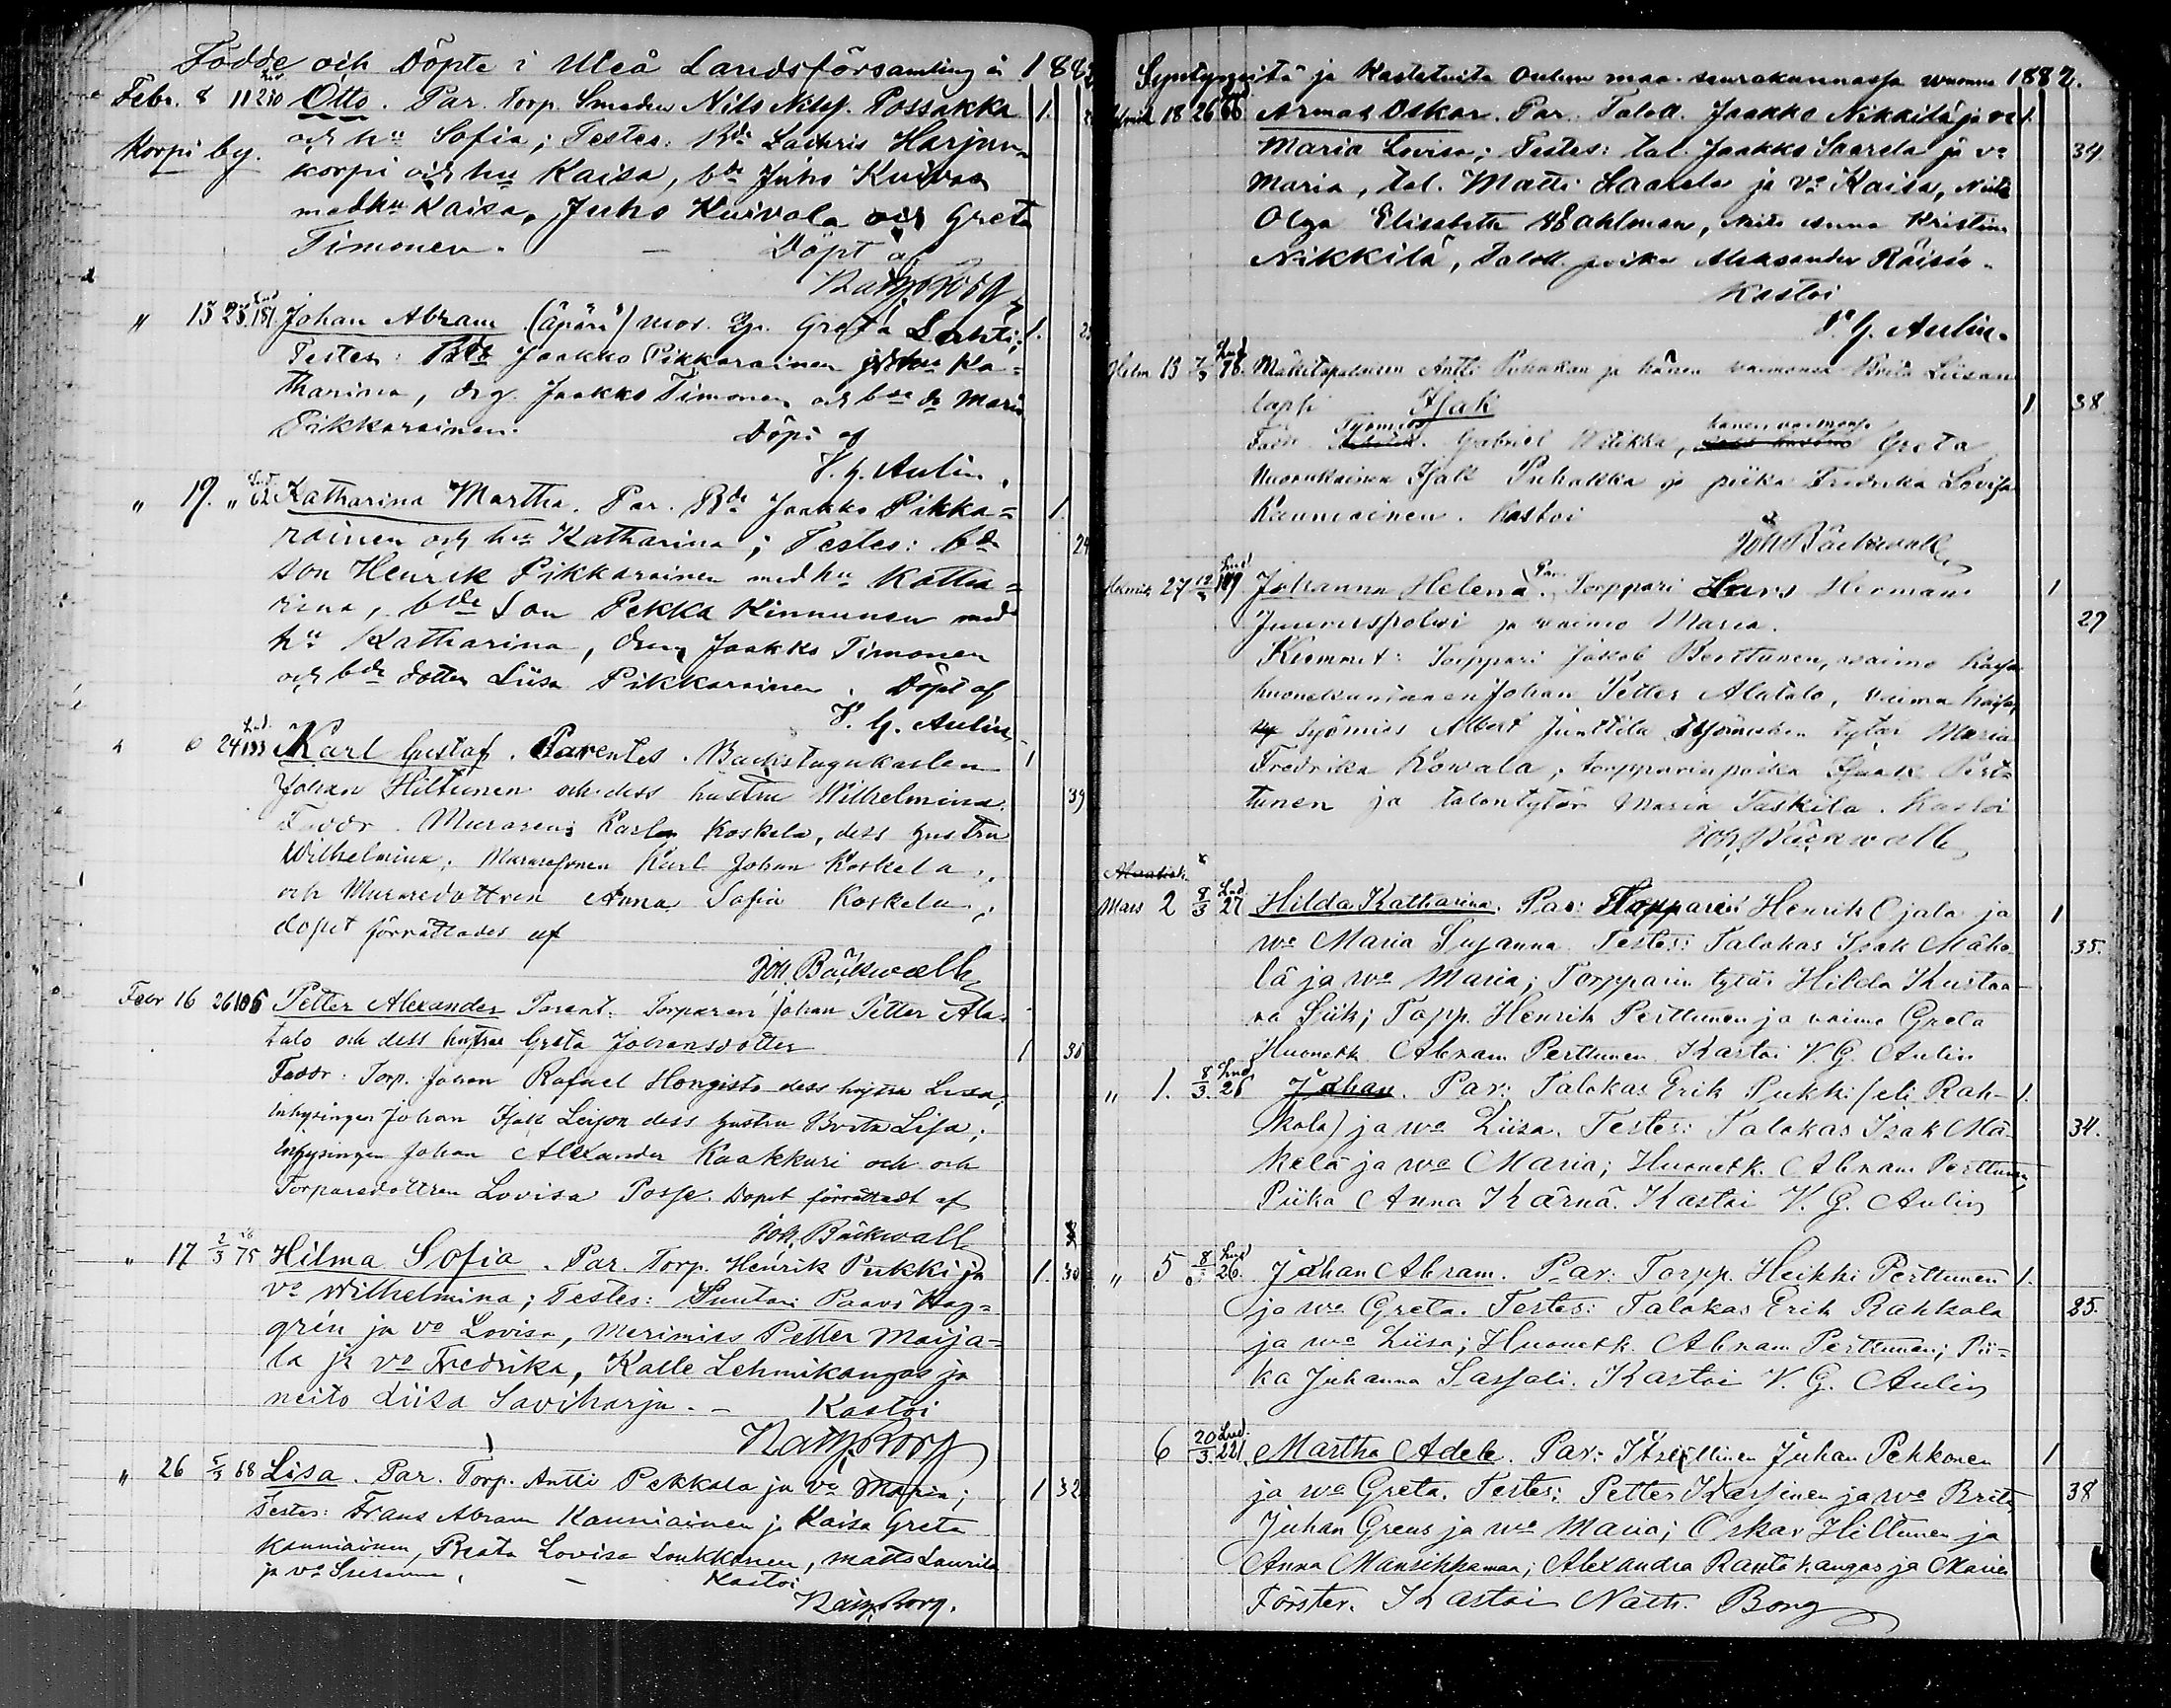 Födde och Döpte i Uleå Landsförsamling år 1882
Febr. 8 11 210 Otto. Par. Torp. Smeden Nils Possakka 1.
Korpi by. och hu Sofia; Testes: Bde Harjun-
korpi och hu Kaisa, bde Juho Kuivas
med hu Kaisa, Juho Kuivala och Greta
Timonen. - Döpt af
Nath. Borg
" 13 25 181. Johan Abram (äpärä) mor. Greta Lahti; 1.
Testes: Bde Jaakko Pikkarainen och hu Ka=
tharina, drg. Jaakko Timonen och Maria
Pikkarainen. Döpt af
V. G. Aulin.
" 19. " 62 Katharina Martha. Par. Bde Jaakko Pikka= 1.
rainen och hu Katharina; Testes: bde
son Henrik Pikkarainen med hu Katha=
rina, bde Son Pekka Kinnunen med
hu Katharina, Jaakko Timonen
och bde dotter Liisa Pikkarainen. Döpt af
V. G. Aulin
24 193 Karl Gustaf. Parentes. Backstugukarlen 1
Johan Hiltunen och dess hustru Wilhelmina 39
Faddr. Muraren Karl Koskela, dess hustru
Wilhelmina; Karl Johan Koskela,
och Muraredottren Anna Sofia Koskela;
dopet förrättades af
Joh. Bäckwall
16 26 106 Petter Alexander Parent. Torparen Johan Petter Ala-
talo och dess hustru Greta Johansdotter 1
Faddr. Torp. Johan Rafael Hongisto dess hustru Lisa;
Inhysingen Johan Isak Leijon dess hustru Brita Lisa;
Inhysingen Johan Alexander Kaakkuri och och
Torparedottren Lovisa Posse. Dopet förrättadt af
Joh. Bäckwall
" 17 2/3 75 Hilma Sofia. Par. Torp. Henrik Pukki ja 1. 30
vo Wilhelmina; Testes: Suutari Paavo Hag=
grén ja vo Lovisa, Merimies Petter Maija=
la ja vo Fredrika, Kalle Lehmikangas ja
neito Liisa Saviharju. - Kastoi
Nath. Borg
" 26 5/3 68 Lisa. Par. Torp. Antti Pekkala ja vo Maria; 1 32
Testes: Frans Abram Kauniainen ja Kaisa Greta
Kauniainen, Beata Lovisa Loukkonen, Matts Laurila
ja vo Susanna. - Kastoi
Nath. Borg.
Syntyneitä ja Kastetuita Oulun maa-seurakunnassa vuonna 1882.
18 26 66 Armas Oskar. Par. Taloll. Jaakko Nikkilä ja vo 1.
Maria Lovisa; Testes: tal. Jaakko Saarela ja vo 34
Maria, tal. Matti Laarela ja vo Kaisa, Neito
Olga Elisabeth Wahlman, Neito Anna Kristina
Nikkilä, Taloll. poika Aleksander Räisä.
Kastoi
V. G. Aulin.
Helm 13 78. Mäkitupalaisen Antti Puhakan ja hänen vaimonsa Brita Liisan
lapsi Isak 1 38
Työmies Gabriel Wilikka, hänen vaimonsa Greta
Nuorukainen Isak Puhakka ja piika Fredrika Lovisa
Kauniainen. Kastoi
Joh Bäckwall
27 12/3 109. Johanna Helena. Par Torppari Hans Herman 1
ja vaimo Maria. 29
Kummit: Torppari Jakob Perttunen, vaimo Kaisa
Johan Petter Alatalo, vaimo Kaisa,
työmies Albert Junttila työmiehen tytär Maria
Fredrika Kowala, torpparin poika Isaak Pert-
tunen ja talontytär Maria Taskila. Kastoi
Joh. Bäckwall
Mars 2 8/3 27 Hilda Katharina. Par: Torppari Henrik Ojala ja 1
wo Maria Susanna. Testes: Talokas Isak Mäke- 35.
lä ja wo Maria; Torpparin tytär Hilda Kustaa-
va Siik; Torpp. Henrik Perttunen ja vaimo Greta
Huonekk. Abram Perttunen. Kastoi V. G. Aulin
" 1. 8/3. 26 Johan. Par: Talokas Erik Pukki (eli Rah- 1.
kola) ja wo Liisa. Testes: Talokas Isak Mä- 34.
kelä ja wo Maria; Huonekk. Abram Perttunen,
Piika Anna Kärnä. Kastoi V. G. Aulin
" 5 8/3 26. Johan Abram. Par: Torpp. Heikki Perttunen 1.
ja wo Greta. Testes: Talokas Erik Rahkola 25.
ja wo Liisa; Huonekk. Abram Perttunen; Pii=
ka Juhanna Sassali. Kastoi V. G. Aulin
6 20/3. 221 Martha Adele. Par: Itsellinen Juhan Pehkonen 1
ja wo Greta. Testes: Petter Karsinen ja wo Brita, 38
Juhan Greus ja wo Maria; Oskar Hiltunen ja
Anna Mansikkamaa; Alexandra Rantakangas ja Maria
Förster. Kastoi Nath. Borg